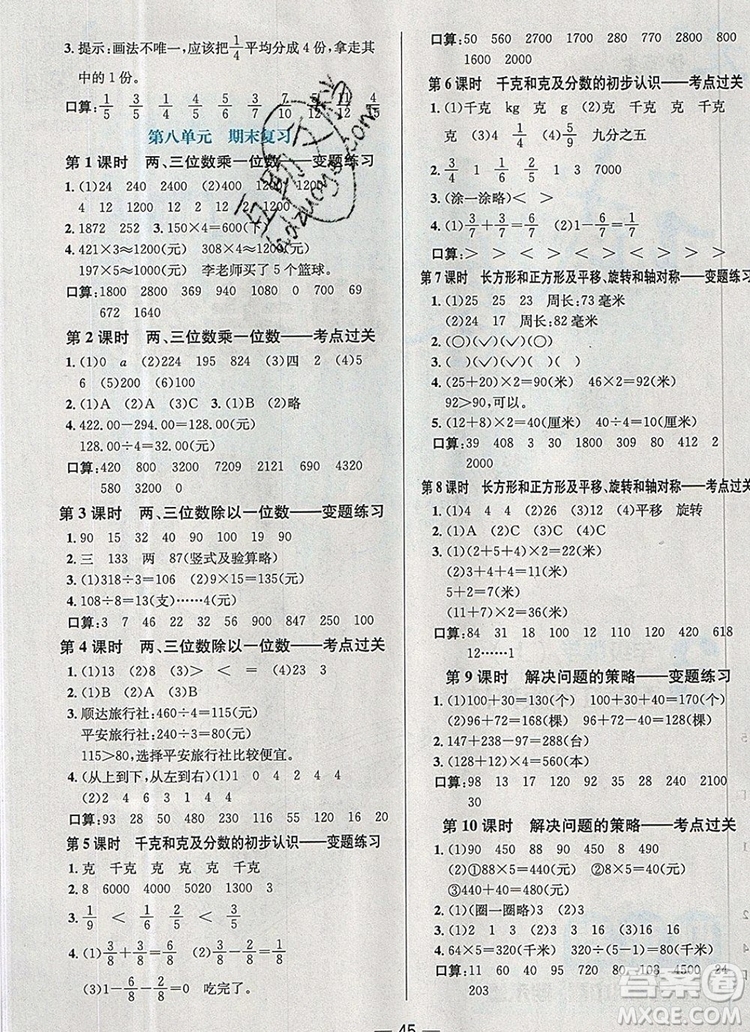 3. 提示：画法不唯一，应该把1/4平均分成4份，拿走其
中的1份。
口算：1/5 1/5 3/5 2/7 1/10 9/12 11/12 4/15
第八单元 期末复习
第 1 课时 两、三位数乘一位数——变题练习
1. (1)24 240 2400 (2)28 280 2800
4 12 1200 12 2 12 1200 2
2. 1872 252 3. 150×4=600(下)
4. 421×3≈1200(元) 308×4≈1200(元)
197×5≈1000(元) 李老师买了 5 个篮球。
口算：1800 2800 369 960 1000 8000 69
672 1640
第 2 课时 两、三位数乘一位数——考点过关
1. (1)0 a (2)224 195 824 (3)四 2 (4)5
6 (5)200 (6)100
2. (1)A (2)A (3)C 3. (1)B (2)略
4. 422.00-294.00=128.00(元)
128.00÷4=32.00(元)
口算：420 800 3200 7200 2100 660 4320
2000
第 3 课时 两、三位数除以一位数——变题练习
1. 90 15 32 40 90 100 19 90
2. 三 133 两 87(竖式及验算略)
3. (1)318÷3=106(元) (2)9×15=135(元)
4. 108÷8=13(支)……4(元)
口算：7 46 22 32 56 900 847 250 100
第 4 课时 两、三位数除以一位数——考点过关
1. (1)13 (2)8 (3)> < = (4)23 3
2. (1)B (2)A (3)C
3. 顺达旅行社：460÷4=115(元)
平安旅行社：240÷3=80(元)
115>80，选择平安旅行社比较便宜。
4. (从上到下，从左到右)(1)1 0 4 2 4 4
(2)2 4 3 1 4 4 4
口算：93 28 50 480 230 116 120 16 15
第 5 课时 千克和克及分数的初步认识——变题练习
1. 克 千克 克 千克
2. 8 6000 4000 5020 1300 3
3. 1/9 < 2/3 1/4 < 1/2
4. (1)3/8+3/8=6/8 (2)3/8-2/8=1/8
(3)1-6/8-2/8=0 吃完了。
口算：50 560 2700 800 800 2100 88
1640 1600
第 6 课时 千克和克及分数的初步认识——考点过关
1. (1)千克 kg 克 g (2)千克 克 千克
克 (3)4 1/4 (4)5/9 九分之五
2. 3/4 1/3 1 4 4 2
3. (涂一涂略) < >
4. (1)3/7+3/7=6/7 (2)1-6/7=1/7
口算：> > > > < > < > >
第 7 课时 长方形和正方形及平移、旋转和轴对称——变题练习
1. (1)25 25 23 周长：73 毫米
(2)17 24 周长：82 毫米
2. (○)(√)(√)(○)
3. (√)(√)(√)( )
4. (25+20)×2=90(厘米) 46×2=92(厘米)
92>90，可以。
5. (12+8)×2=40(厘米) 40÷4=10(厘米)
口算：39 408 3 30 1800 309 80 48
2000
第 8 课时 长方形和正方形及平移、旋转和轴对称——考点过关
1. (1)4 4 4 (2)26 (3)12 (4)平移 旋转
2. (1)C (2)C (3)A
3. (1)(2+5+4)×2=22(厘米)
(2)3+4+4=11(厘米)
5+2+4=11(厘米)
(11+7)×2=36(厘米)
口算：84 31 18 100 120 420 2420 618
12……1
第 9 课时 解决问题的策略——变题练习
1. (1)100+30=130(个) 100×3=300(个)
(2)96+2=98(棵) 96×2=192(棵)
2. 147+238-97=288(台)
3. (128-8)×3=360(本)
口算：98 13 17 92 120 35 88 2100
30
第 10 课时 解决问题的策略——考点过关
1. (1)90 450 88 (2)98
2. (2)①88×5=440(元) ②85×8=680(元)
③440÷4=110(元)
3. (1)(圈一圈略) (2)3
4. (1)2 1 9 (2)33 (3)16
5. 64×5=320(千米) 320÷(5-1)=80(千米)
口算：11 60 40 95 80 108 4500 24
203
45
答案圈
MXQE.COM